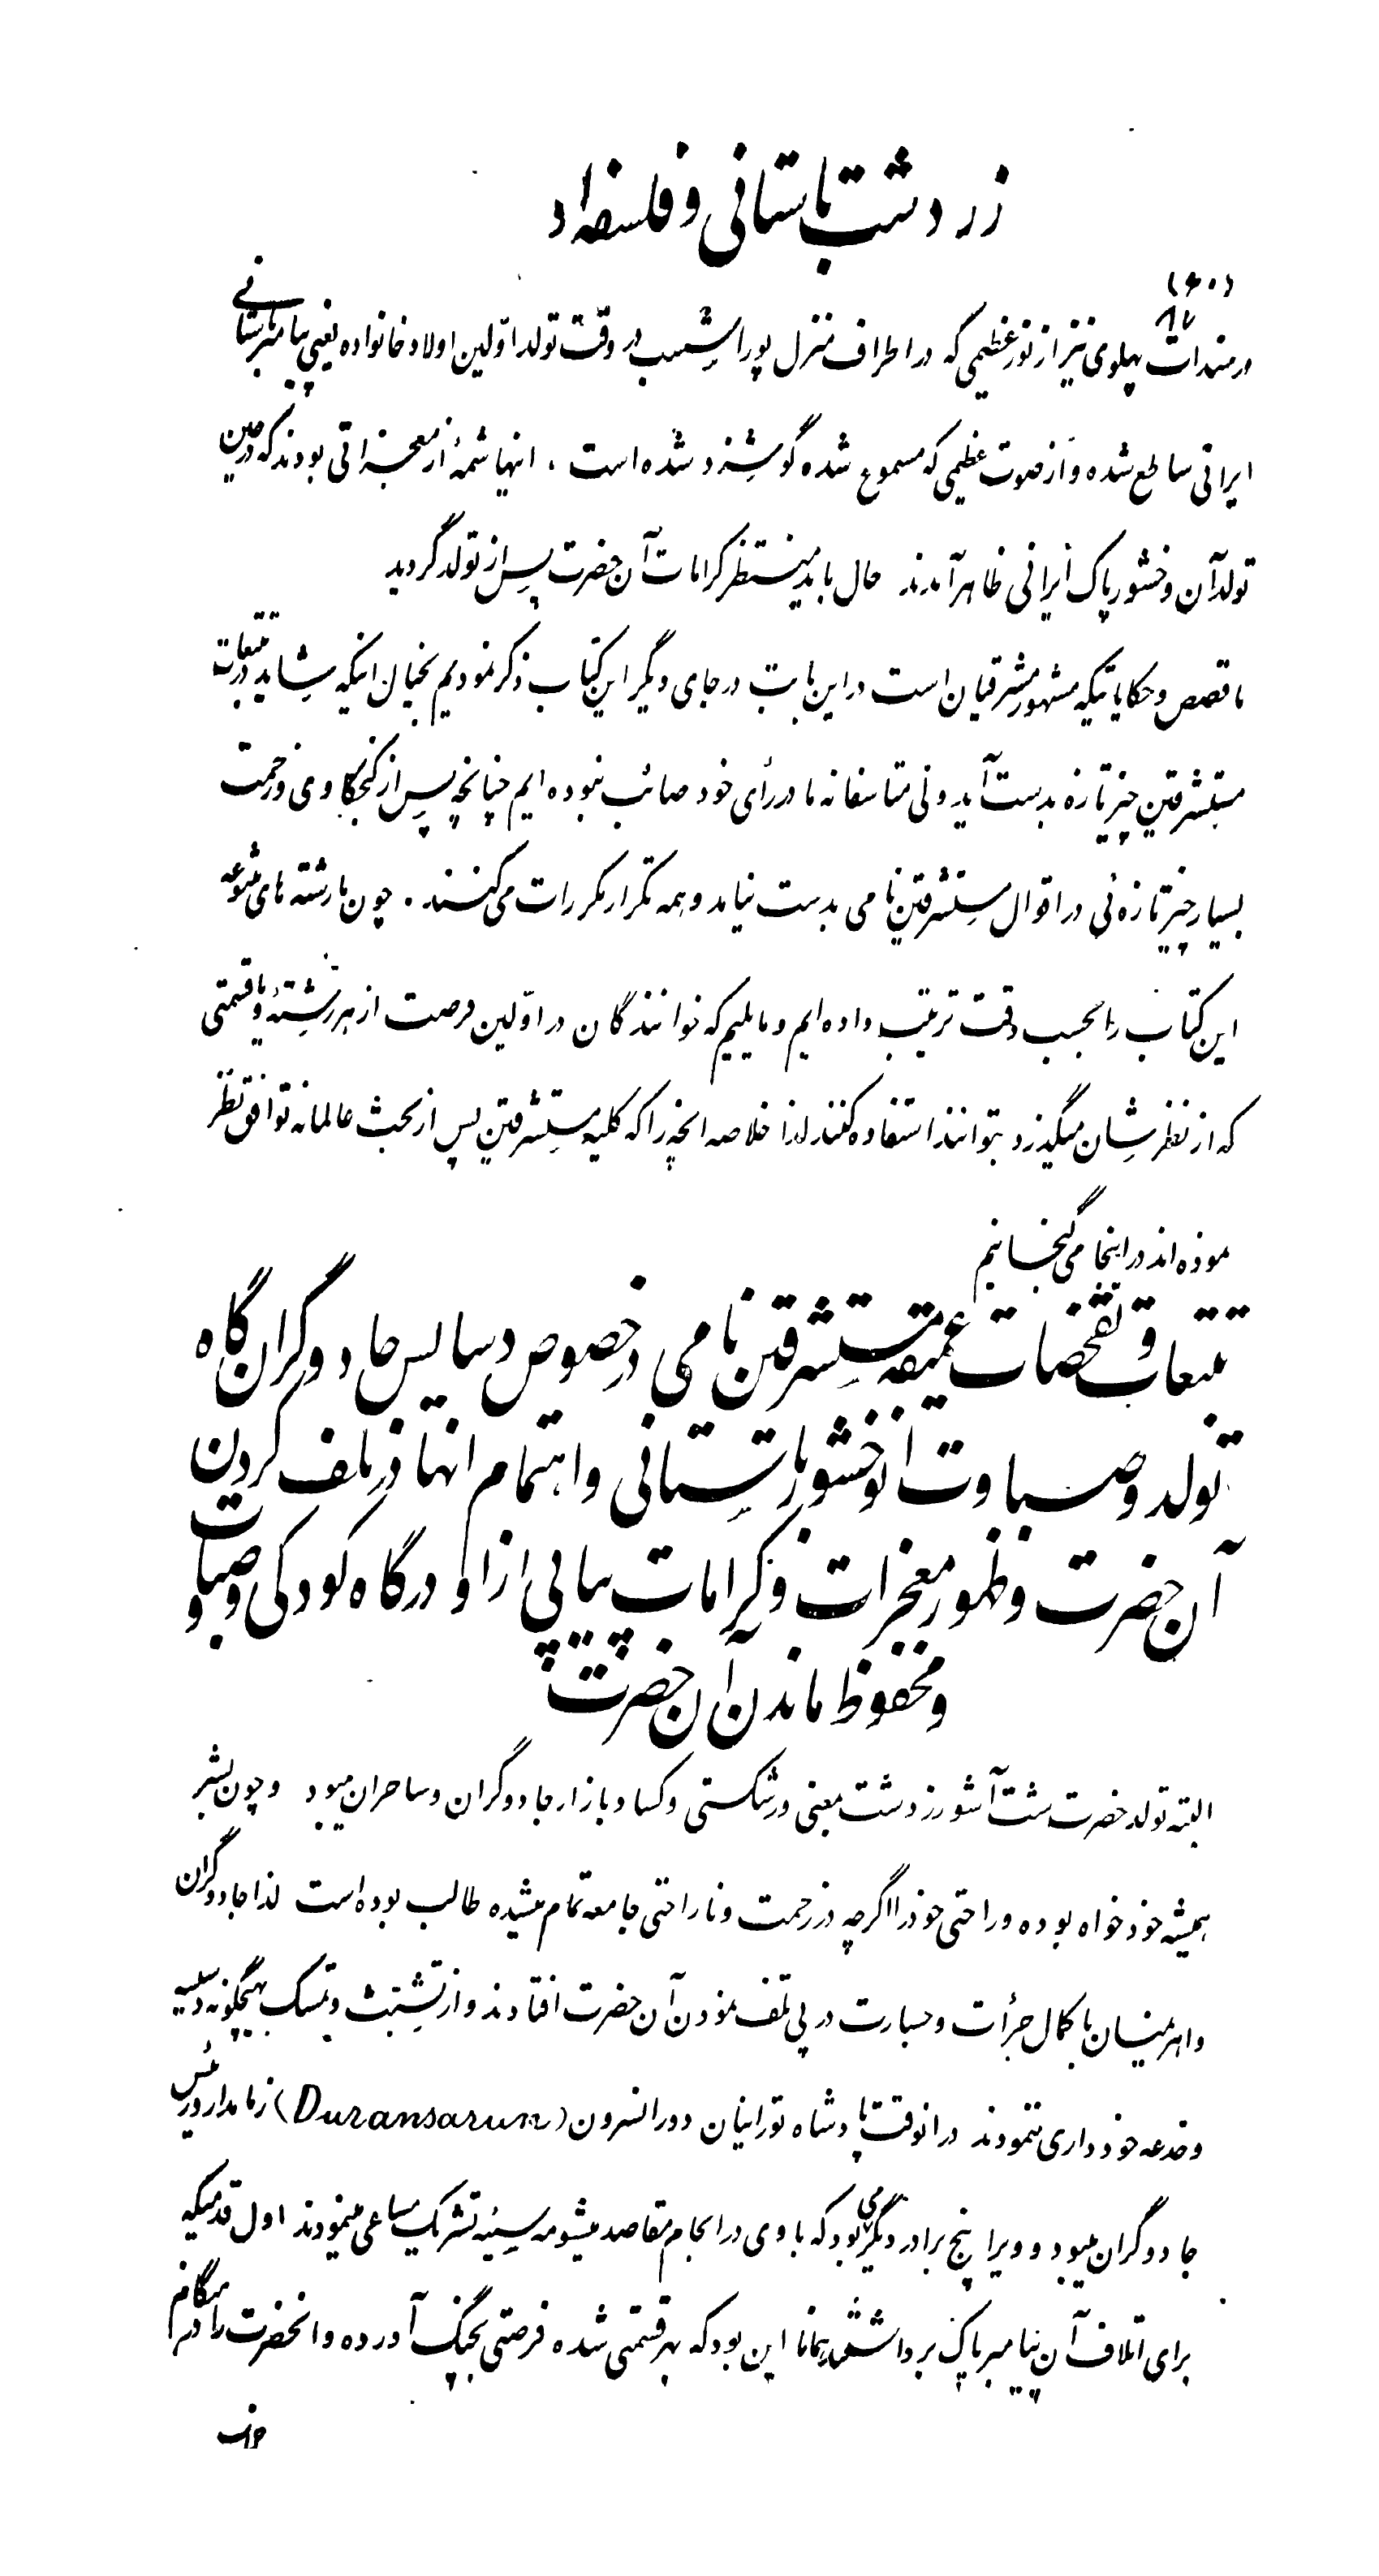 زردشت باستانی و فلسفه او
(۶۰)
در مندرجات پهلوی نیز از نور عظیمی که در اطراف منزل پوراشسب در وقت تولد اولین اولاد خانواده یعنی پیامبر باستانی
ایرانی ساطع شده و از صوت عظیمی که مسموع شده گوشزد شده است ، اینها شمهٔ از معجزاتی بودند که در حین
تولد آن وخشور پاک ایرانی ظاهر آمدند حال باید منتظر کرامات آن حضرت پس از تولد گردید
ما قصص و حکایاتیکه مشهور مشرقیان است در این بابت در جای دیگر این کتاب ذکر نمودیم بخیال اینکه شاید در تتبعات
مستشرقین چیز تازه بدست آید ولی متاسفانه ما در رأی خود صائب نبوده ایم چنانچه پس از کنجکاوی و زحمت
بسیار چیز تازه ئی در اقوال مستشرقین نامی بدست نیامد و همه تکرار مکررات می کنند . چون ما رشته های متنوعه
این کتاب را بحسب دقت ترتیب داده ایم و مایلیم که خوانندگان در اولین فرصت از هر رشتهٔ و یا قسمتی
که از نظر شان میگذرد بتوانند استفاده کنند لهذا خلاصه انچه را که کلیه مستشرقین پس از بحث عالمانه توافق نظر
نموده اند در اینجا می گنجانیم
تتبعات و تفحصات عمیقه مستشرقین نامی در خصوص دسایس جادوگران گاه
تولد و صباوت انوخشور باستانی و اهتمام انها در تلف کردن
آن حضرت و ظهور معجزات و کرامات پیاپی از او در گاه کودکی و صباوت
و محفوظ ماندن آن حضرت
البته تولد حضرت شت آشو زردشت معنی ورشکستی و کساد بازار جادوگران و ساحران میبود و چون بشر
همیشه خود خواه بوده و راحتی خود را اگرچه در زحمت و ناراحتی جامعه تمام میشده طالب بوده است لذا جادوگران
و اهریمنیسان با کمال جرأت و جسارت در پی تلف نمودن آن حضرت افتادند و از تشبث و تمسک بهیچگونه دسیسه
و خدعه خودداری ننمودند در انوقت پادشاه تورانیان دورانسرون (Duransarun) زمامدار و رئیس
جادوگران میبود و ویرا پنج برادر دیگر می بود که با وی در انجام مقاصد میشومه سیئه تشریک مساعی مینمودند اول قدمیکه
برای اتلاف آن پیامبر پاک برداشتند همانا این بود که بهر قسمتی شده فرصتی بچنگ آورده و انحضرت را در هنگام
خواب